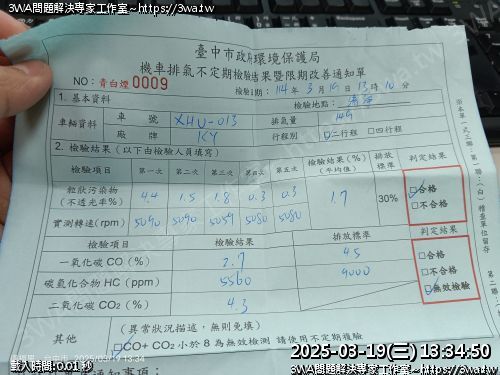 3WA問題解決專家工作室~https://3wa.tw
3WA問題解決專家工作室~https://3wa.tw
臺中市政府環境保護局
機車排氣不定期檢驗結果暨限期改善通知單
NO: 青白煙0009
檢驗日期: 114年3月19日13時10分
1. 基本資料
檢驗地點:
車輛資料 車號 XHU-013 排氣量 149
廠牌 KY 行程別 二行程 四行程
2. 檢驗結果(以下由檢驗人員填寫)
檢驗項目 第一次 第二次 第三次 第四次 第五次 檢驗結果(%)(平均值) 排放標準 判定結果
粒狀污染物(不透光率%) 4.4 1.5 1.8 0.3 0.3 1.7 30% 合格
不合格
實測轉速(rpm) 5090 5090 5059 5080 5080
檢驗項目 檢驗結果 排放標準 判定結果
一氧化碳CO(%) 2.7 4.5 合格
碳氫化合物HC(ppm) 5560 9000 不合格
二氧化碳CO₂(%) 4.3 無效檢驗
其他 (異常狀況描述,無則免填)
CO+CO₂小於8為無效檢測 請使用不定期複驗
※本單一式三聯:第一聯:(白)稽查單位留存
第二聯
2025/03/19 13:34
載入時間:0.01秒
2025-03-19(三) 13:34:50